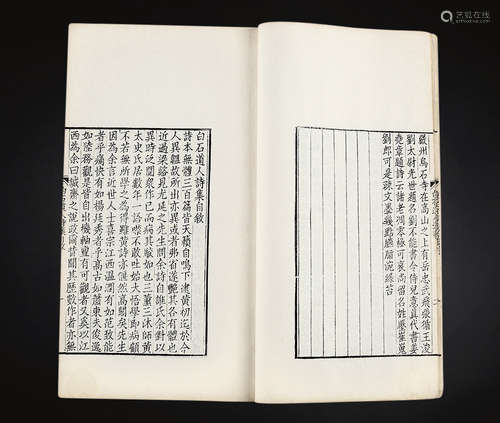 嚴州烏石寺在高山之上有岳忠武飛張循王浚
劉太尉光世題名劉不能書令侍兒意真代書姜
堯章題詩云諸老凋零極可哀尚留名姓壓崔嵬
劉郎可是疎文墨幾點臙脂涴綠苔
白石道人詩集自敘
詩本無體三百篇皆天籟自鳴下逮黃初迄於今
人異韞故所出亦異或者弗省遂艷其各有體也
近過梁谿見尤延之先生問余詩自誰氏余對以
異時泛閱衆作已而病其駁如也三薰三沐師黃
太史氏居數年一語噤不敢吐始大悟學即病顧
不若無所學之為得雖黃詩亦偃然高閣矣先生
因為余言近世人士喜宗江西溫潤有如范致能
者乎痛快有如楊廷秀者乎高古如蕭東夫俊逸
如陸務觀是皆自出機軸亶有可觀者又奚以江
西為余曰誠齋之說政爾昔聞其歷數作者亦無
艺狐在线
artfoxlive.com